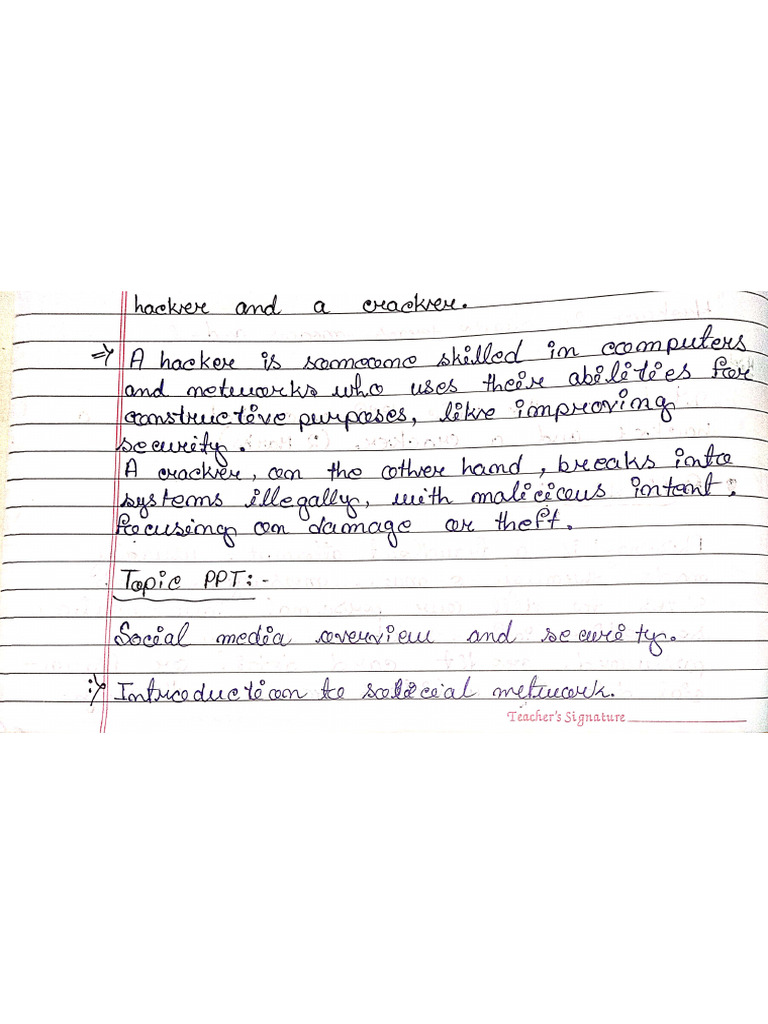 hacker and a cracker.
=> A hacker is someone skilled in computers
and networks who uses their abilities for
constructive purposes, like improving
security.
A cracker, on the other hand, breaks into
systems illegally, with malicious intent,
focusing on damage or theft.
Topic PPT:-
Social media overview and security.
:> Introduction to social network.
Teacher's Signature